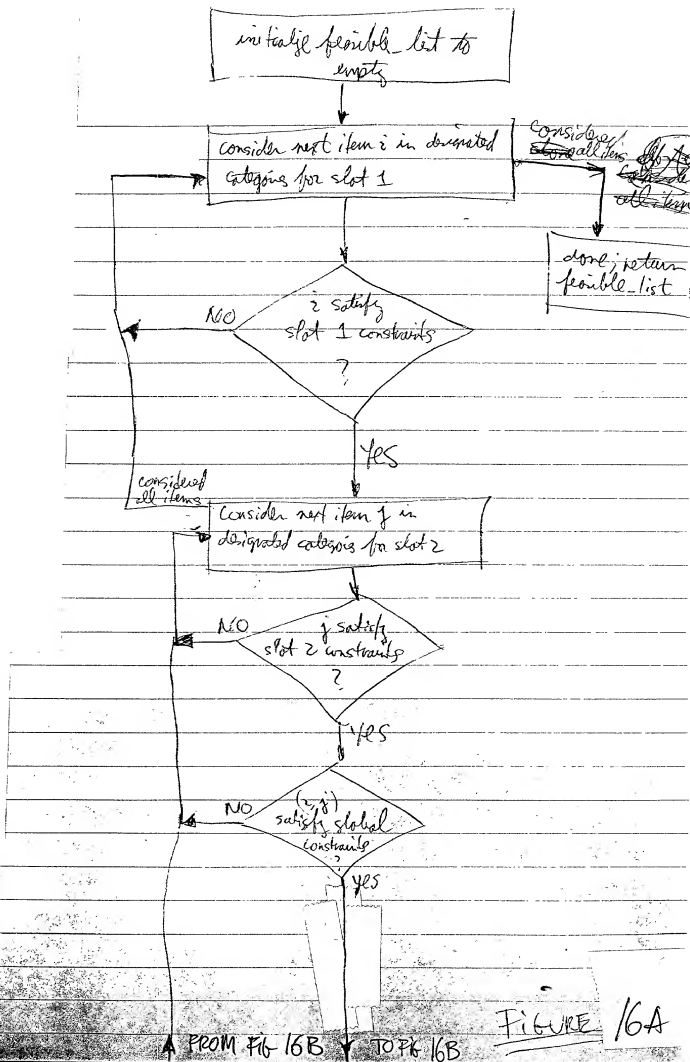 initialize feasible_list to
empty
consider next item i in designated
categories for slot 1
considered
all items
done; return
feasible_list
i satisfy
slot 1 constraints
?
NO
YES
considered
all items
Consider next item j in
designated categories for slot 2
NO
j satisfy
slot 2 constraints
?
YES
NO
(i, j)
satisfy global
constraints
?
YES
FROM FIG 16B
TO FIG 16B
FIGURE 16A